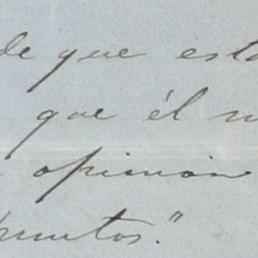 de que est
que él n
opinion
puntos."